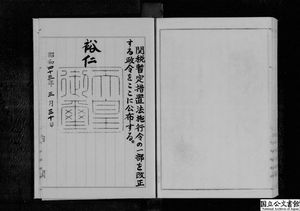 関税暫定措置法施行令の一部を改正
する政令をここに公布する。
裕仁
昭和四十三年三月三十日
国立公文書館